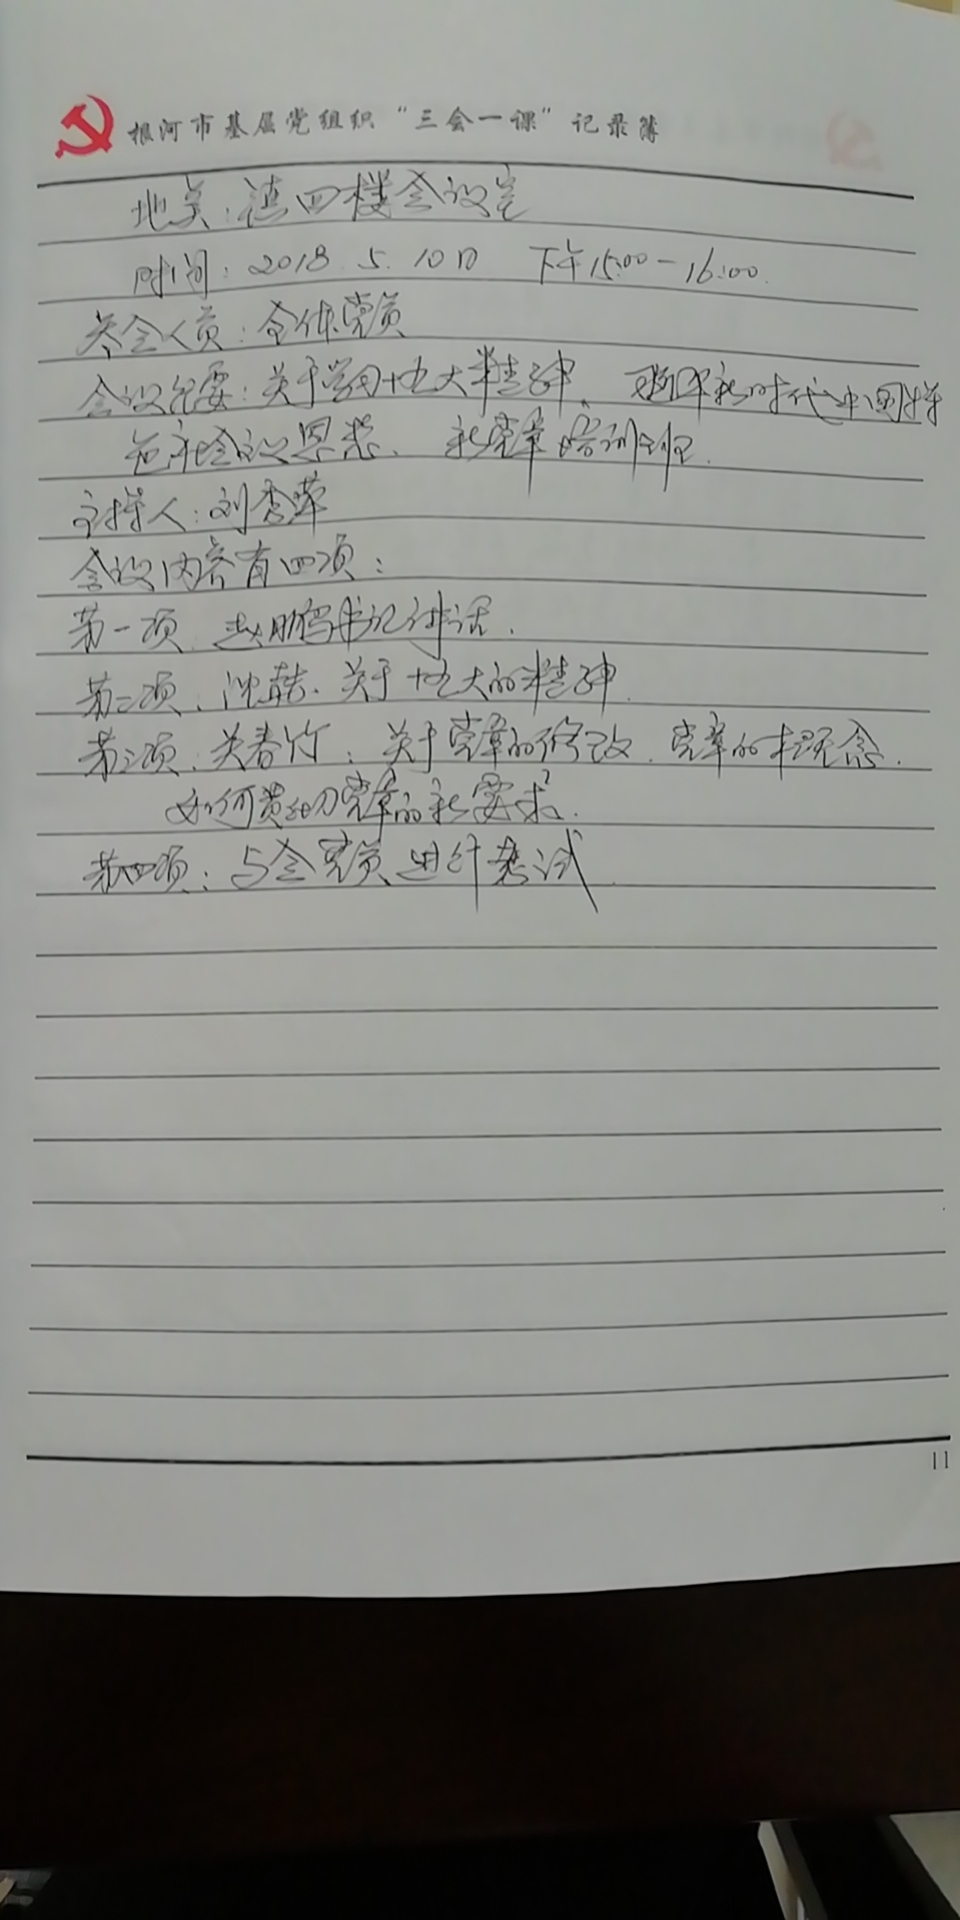 根河市基层党组织“三会一课”记录簿
地点:镇四楼会议室
时间:2018.5.10日 下午15:00-16:00.
参会人员:全体党员
会议纪要:关于学习十九大精神、习近平新时代中国特
色社会主义思想、新党章培训班.
主持人:刘秀萍
会议内容有四项:
第一项、赵鹏书记讲话.
第二项、沈喆、关于十九大的精神.
第三项、关春竹:关于党章的修改、党章的新理念.
如何贯彻党章的新要求.
第四项:与会党员进行考试.
11